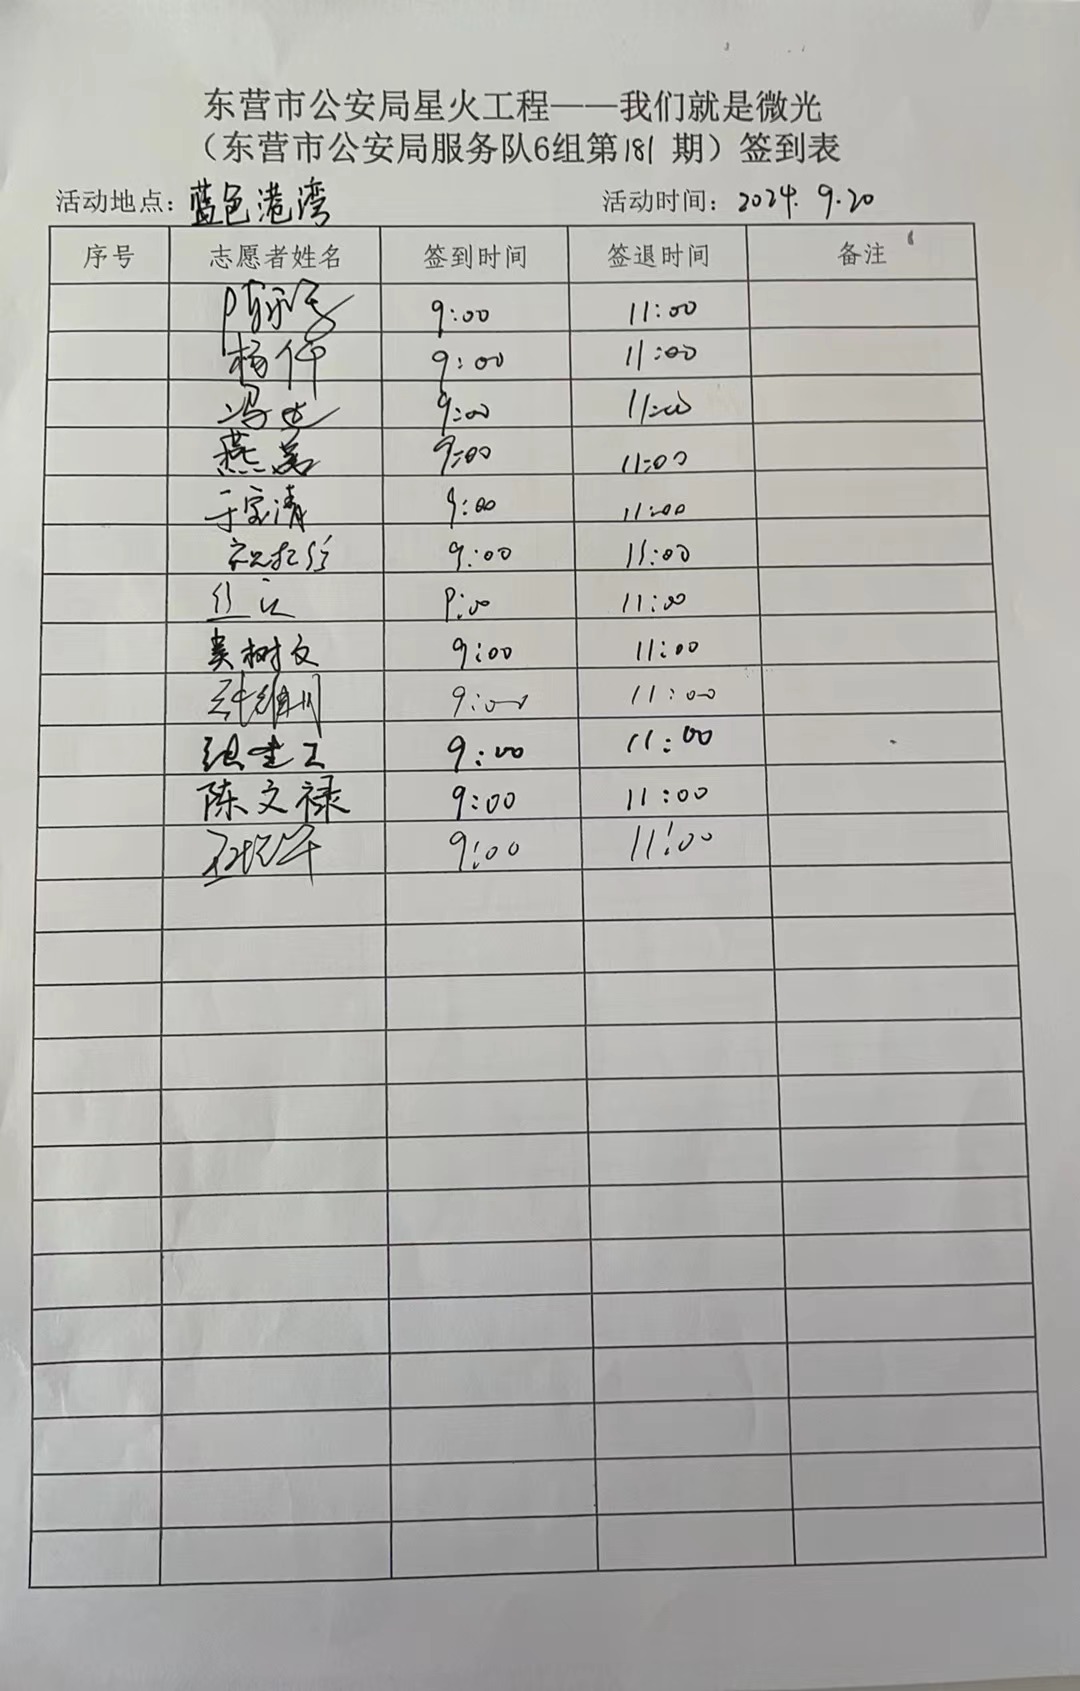 东营市公安局星火工程——我们就是微光
（东营市公安局服务队6组第181期）签到表
活动地点：蓝色港湾 活动时间：2024.9.20
序号 志愿者姓名 签到时间 签退时间 备注
9:00 11:00
杨仟 9:00 11:00
冯 9:00 11:00
燕 9:00 11:00
于宝清 9:00 11:00
9:00 11:00
9:00 11:00
娄树文 9:00 11:00
9:00 11:00
9:00 11:00
陈文禄 9:00 11:00
9:00 11:00